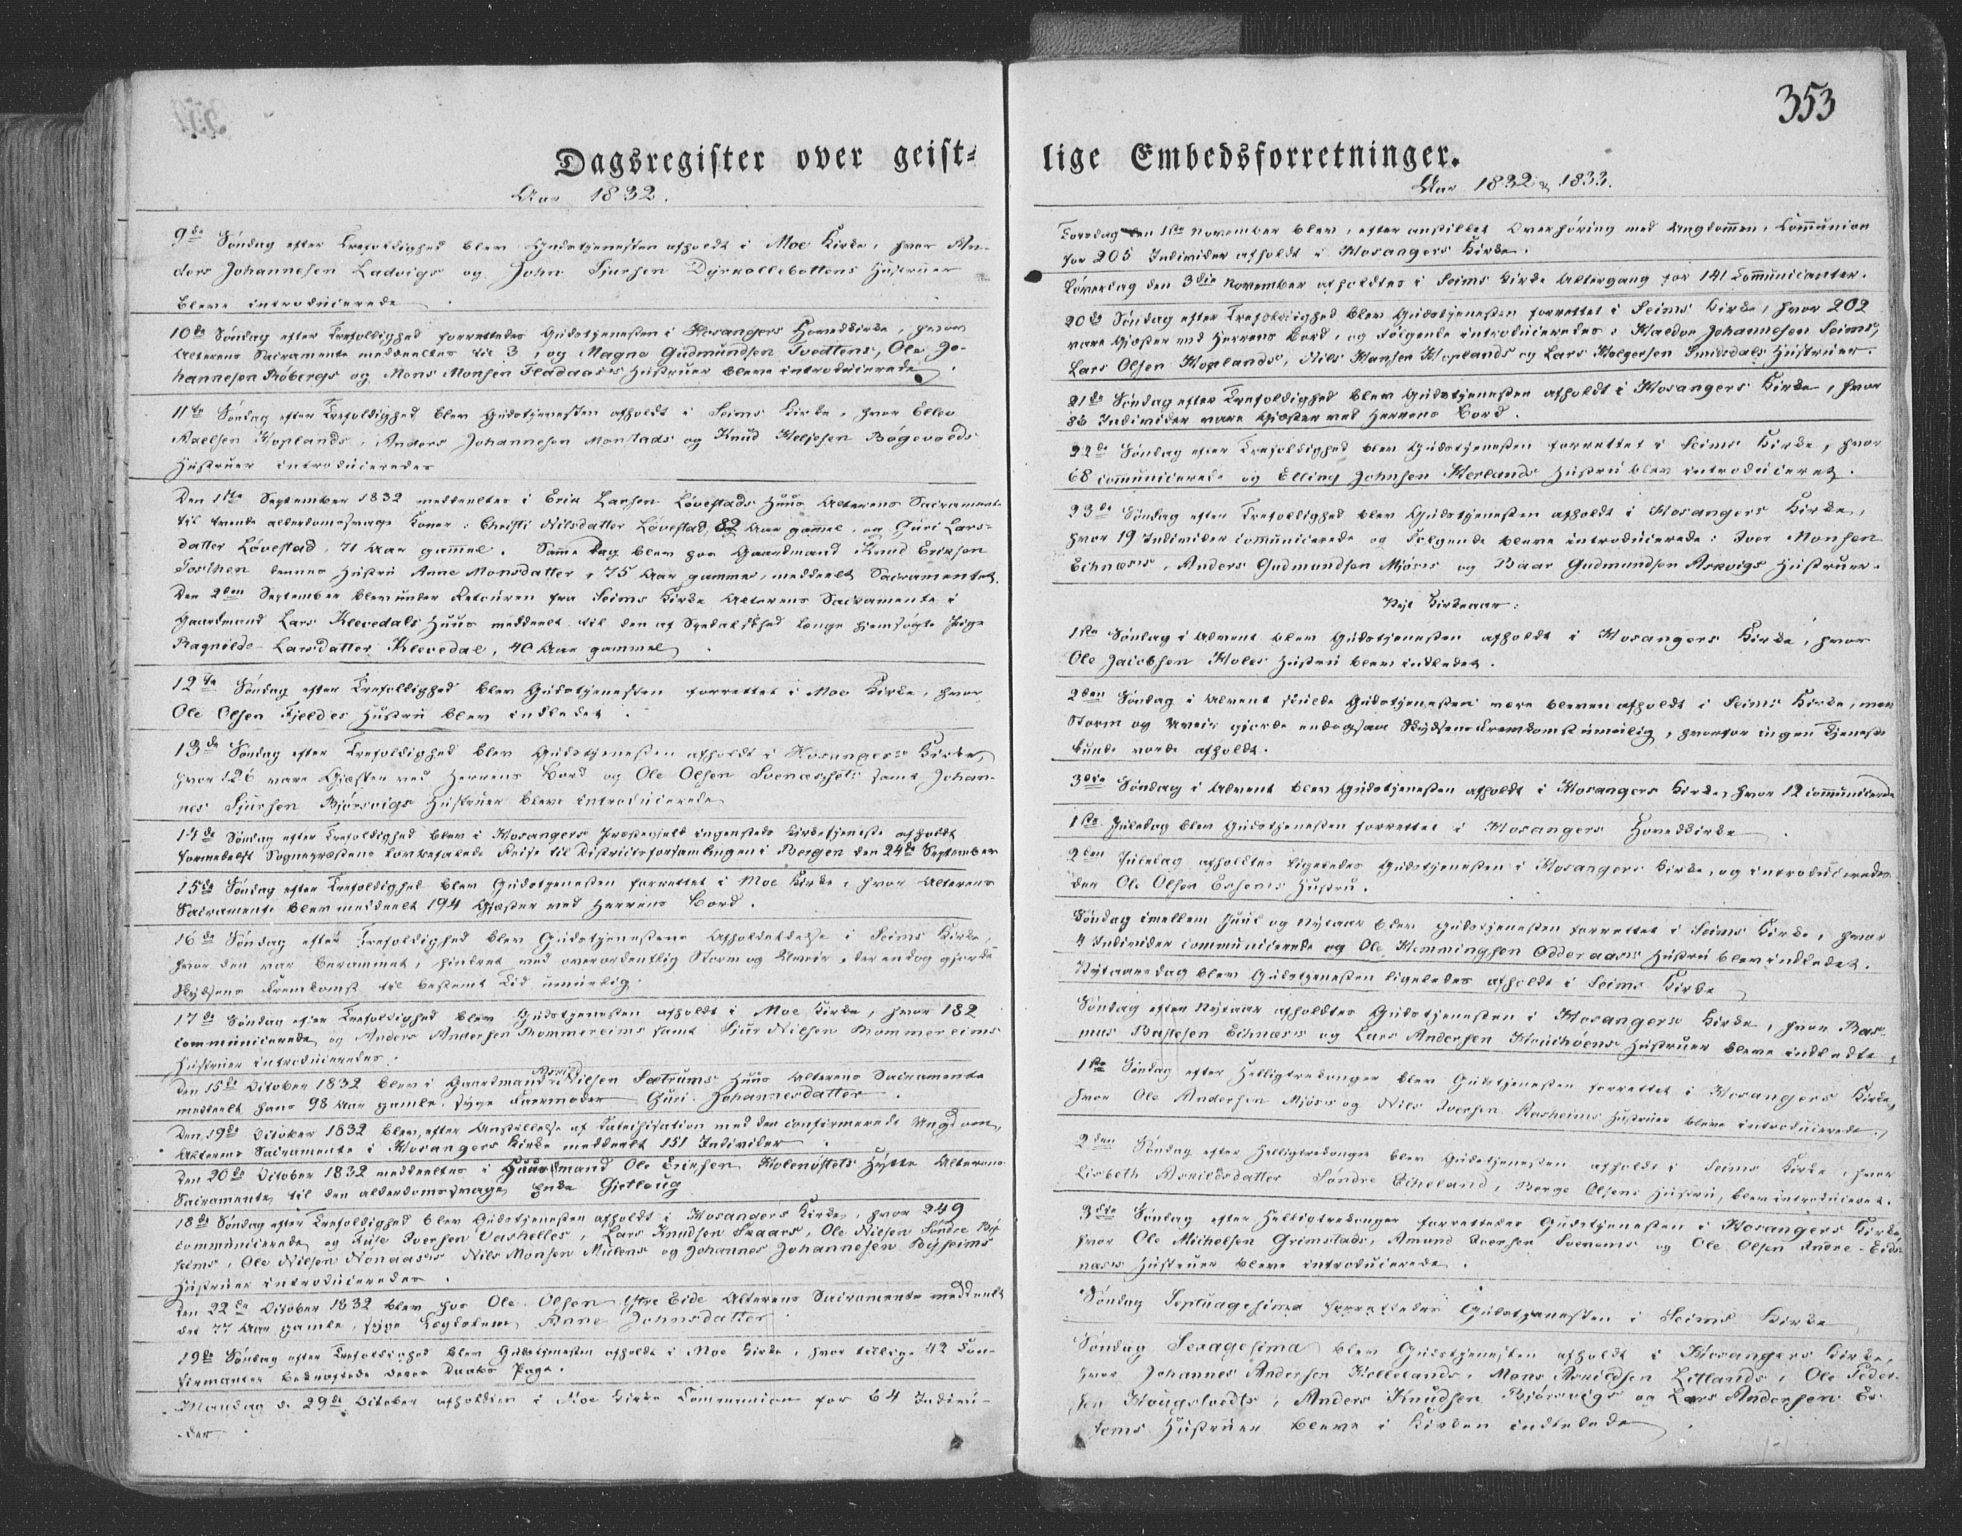 353
Dagsregister over geist-
Aar 1832.
9de Søndag efter Trefoldighed blev Gudstjenesten afholdt i Moe Kirke, hvor An-
ders Johannesen Ladvigs og John Sjursen Dyrkollebottens Hustruer
bleve introducerede.
10de Søndag efter Trefoldighed forrettedes Gudstjenesten i Hosangers Hovedkirke, hvor
Alterens Sacramente meddeeltes til 3, og Magne Gudmundsen Tvedtens, Ole Jo-
hannesen Röbergs og Mons Monsen Fladaas's Hustruer bleve introducerede.
11te Søndag efter Trefoldighed blev Gudstjenesten afholdt i Seims Kirke, hvor Ellev
Hoplands, Anders Johannesen Monstads og Knud Heljesen Bøgevolds
Hustruer introduceredes
Den 1ste September 1832 meddeeltes i Erik Larsen Løvestads Huus Alterens Sacramente
til trende alderdomssvage Koner: Christi Nilsdatter Løvestad, 82 Aar gammel, og Guri Lars-
datter Løvestad, 71 Aar gammel. Samme Dag blev hos Gaardmand Knud Eriksen
dennes Hustru Anne Monsdatter, 75 Aar gammel, meddeelt Sacramentet.
Den 2den September blev under Retouren fra Seims Kirke Alterens Sacramente i
Gaardmand Lars Klevedals Huus meddeelt til den af Spedalskhed længe hjemsøgte Pige
Ragnilde Larsdatter Klevedal, 40 Aar gammel.
12te Søndag efter Trefoldighed blev Gudstjenesten forrettet i Moe Kirke, hvor
Ole Olsen Fjeldes Hustru blev indledet.
13de Søndag efter Trefoldighed blev Gudstjenesten afholdt i Hosangers Kirke,
hvor 126 vare Gjæster ved Herrens Bord og Ole Olsen samt Johan-
nes Sjursen Bjørsvigs Hustruer bleve introducerede
14de Søndag efter Trefoldighed blev i Hosangers Præstegjeld ingensteds Kirketjeneste afholdt
formedelst Sognepræstens lovbefalede Reise til Districtsforsamlingen i Bergen den 24de September
15de Søndag efter Trefoldighed blev Gudstjenesten forrettet i Moe Kirke, hvor Alterens
Sacramente blev meddeelt 194 Gjæster ved Herrens Bord.
16de Søndag efter Trefoldighed blev Gudstjenestens Afholdeldelse i Seims Kirke,
hvor den var berammet, hindret ved overordentlig Storm og Uveir, der endog gjorde
Skydsens Fremkomst til bestemt Tid umuelig.
17de Søndag efter Trefoldighed blev Gudstjenesten afholdt i Moe Kirke, hvor 182
communicerede og Anders Andersen Rommereims samt Sjur Nilsen Rommereims
Hustruer introduceredes.
Den 15de October 1832 blev i Gaardmand Nilsen Sætrums Huus Alterens Sacramente
meddeelt hans 98 Aar gamle, syge Faermoder Guri Johannesdatter.
Den 19de October 1832 blev, efter Anstillelse af Catechisation med den confirmerede Ungdom,
Alterens Sacramente i Hosangers Kirke meddeelt 151 Individer.
Den 20de October 1832 meddeeltes i Huusmand Ole Eriksen Holenøstets Hytte Alterens
Sacramente til den alderdomssvage Enke Gjetloug
18de Søndag efter Trefoldighed blev Gudstjenesten afholdt i Hosangers Kirke, hvor 249
communicerede og Iversen Vashelles, Lars Knudsen Skaars, Ole Nilsen Søndre By-
seims, Ole Nilsen Nonaas's Nils Monsen Mülens og Johannes Johannesen Byseims
Hustruer introduceredes.
Den 22de October 1832 blev hos Ole Olsen Ystre Eide Alterens Sacramente meddeelt
det 77 Aar gamle, syge Lægdslem Anne Johnsdatter
19de Søndag efter Trefoldighed blev Gudstjenesten afholdt i Moe Kirke, hvor tillige 42 Con-
firmanter bekræftede deres Daabs Pagt.
Mandag d. 29de October afholdtes i Moe Kirke Communion for 64 Indivi-
der.
lige Embedsforretninger.
Aar 1832 & 1833.
Torsdag den 1ste November blev, efter anstillet Overhøring med Ungdommen, Communion
for 205 Individer afholdt i Hosangers Kirke.
Løverdag den 3die November afholdtes i Seims Kirke Altergang for 141 Communicanter.
20de Søndag efter Trefoldighed blev Gudstjenesten forrettet i Seims Kirke, hvor 202
vare Gjæster ved Herrens Bord, og følgende introduceredes: Haldor Johannesen Seims,
Lars Olsen Hoplands, Nils Hansen Hoplands og Lars Holgersen Smidsdals Hustruer.
21de Søndag efter Trefoldighed blev Gudstjenesten afholdt i Hosangers Kirke, hvor
86 Individer vare Gjæster ved Herrens Bord.
22de Søndag efter Trefoldighed blev Gudstjenesten forrettet i Seims Kirke, hvor
68 communicerede og Elling Johnsen Herlands Hustru blev introduceret.
23de Søndag efter Trefoldighed blev Gudstjenesten afholdt i Hosangers Kirke,
hvor 19 Individer communicerede og Følgende bleve introducerede: Iver Monsen
Echnæs's, Anders Gudmundsen Mjös's og Baar Gudmundsen Askvigs Hustruer.
Nyt Kirkeaar:
1ste Søndag i Advent blev Gudstjenesten afholdt i Hosangers Kirke, hvor
Ole Jacobsen Holes Hustru blev indledet.
2den Søndag i Advent skulde Gudstjenesten være bleven afholdt i Seims Kirke, men
Storm og Uveir gjorde endogsaa Skydsens Fremkomst umuelig, hvorfor ingen Tjeneste
kunde vorde afholdt.
3die Søndag i Advent blev Gudstjenesten afholdt i Hosangers Kirke, hvor 12 communicerede
1ste Juledag blev Gudstjenesten forrettet i Hosangers Hovedkirke.
2den Juledag afholdtes ligeledes Gudstjenesten i Hosangers Kirke, og introduceredes
der Ole Olsen Eshems Hustru.
Søndag imellem Juul og Nytaar blev Gudstjenesten forrettet i Seims Kirke, hvor
4 Individer communicerede og Ole Hemmingsen Odderaas's Hustru blev indledet.
Nytaarsdag blev Gudstjenesten ligeledes afholdt i Seims Kirke
Søndag efter Nytaar afholdtes Gudstjenesten i Hosangers Kirke, hvor Ras-
mus Echnæs's og Lars Andersen Hustruer bleve indledte.
1ste Søndag efter Helligtrekonger blev Gudstjenesten forrettet i Hosangers Kirke,
hvor Ole Andersen Mjös's og Nils Iversen Rosheims Hustruer bleve introducerede.
2den Søndag efter Helligtrekonger blev Gudstjenesten afholdt i Seims Kirke, hvor
Lisbeth Arnildsdatter Søndre Echeland, Berge Olsens Hustru, blev introduceret.
3die Søndag efter Helligtrekonger forrettedes Gudstjenesten i Hosangers Kirke,
hvor Ole Michelsen Grimstads, Amund Iversen og Ole Olsen Indre-Eids-
næs's Hustruer bleve introducerede.
Søndag Septuagesima forrettedes Gudstjenesten i Seims Kirke
Søndag Sexagesima blev Gudstjenesten afholdt i Hosangers Kirke,
hvor Johannes Andersen Hellelands, Mons Arnildsen Litlands, Ole Peder-
sen Hougstvedts, Anders Knudsen Bjørsvigs og Lars Andersen Es-
hems Hustruer bleve i Kirken indledede.